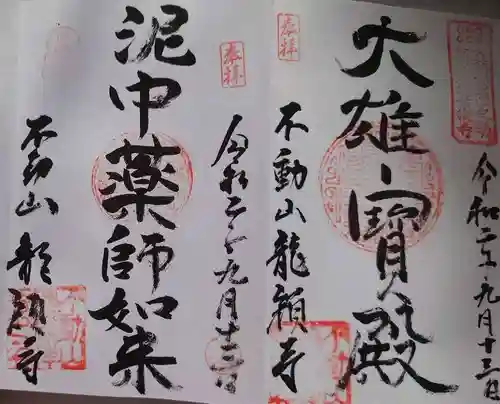 令和二年九月十三日
奉拝
大雄寶殿
不動山龍 寺
奉拝
令和二年九月十三日
泥中薬師如来
不動山 龍 寺